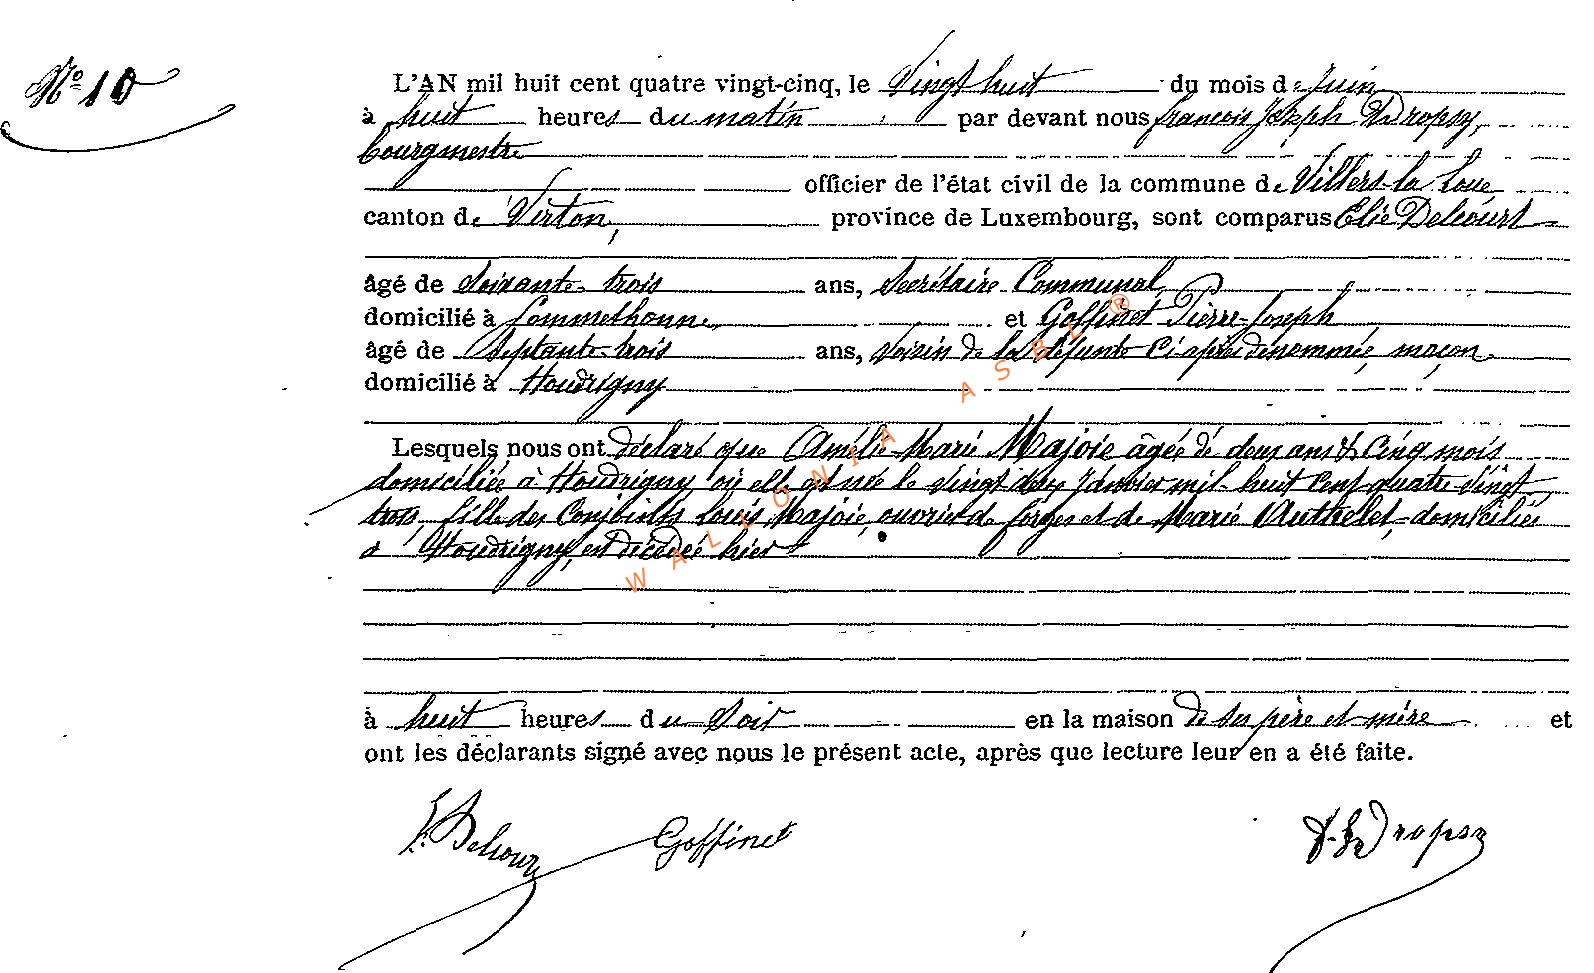 N° 10
L'AN mil huit cent quatre vingt-cinq, le Vingt huit du mois de Juin
à huit heures du matin par devant nous francois Joseph Dropsy,
bourgmestre
officier de l'état civil de la commune de Villers-la Loue
canton de Virton, province de Luxembourg, sont comparus Elie Delcourt
âgé de soixante-trois ans, Secrétaire Communal,
domicilié à Sommethonne, et Goffinet Pierre-Joseph
âgé de Septante-trois ans, voisin de la défunte ci-après dénommée, maçon
domicilié à Houdrigny
Lesquels nous ont déclaré que Amélie Marie Majoie âgée de deux ans & Cinq mois
domiciliée à Houdrigny où elle est née le vingt deux Janvier mil huit Cent quatre Vingt
trois, fille des Conjoints Louis Majoie, ouvrier de forges et de Marie domiciliés
à Houdrigny, est décédée hier
à huit heures du Soir en la maison de ses père et mère et
ont les déclarants signé avec nous le présent acte, après que lecture leur en a été faite.
E. Delcourt Goffinet F. J. Dropsy
WALLONIA ASBL ®